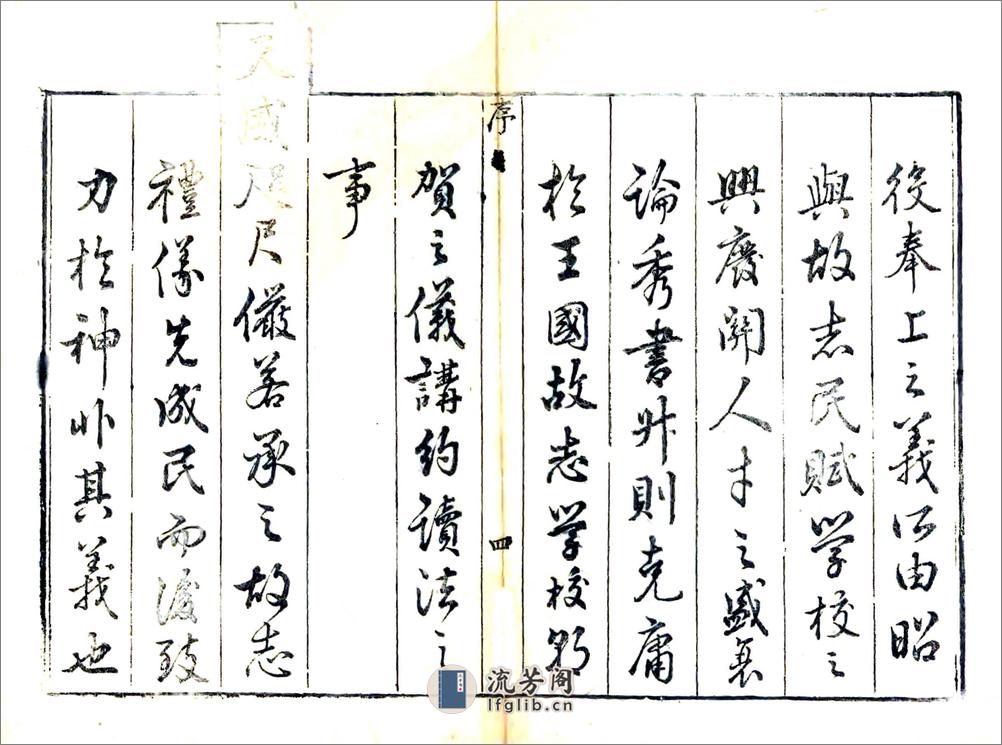 役奉上之義所由昭
與故志民賦學校之
興廢關人才之盛衰
論秀書升則克庸
於王國故志學校朝
賀之儀講約讀法之
事
天威咫尺儼若承之故志
禮儀先成民而後致
力於神非其義也
序
四
流芳阁
lfglib.cn